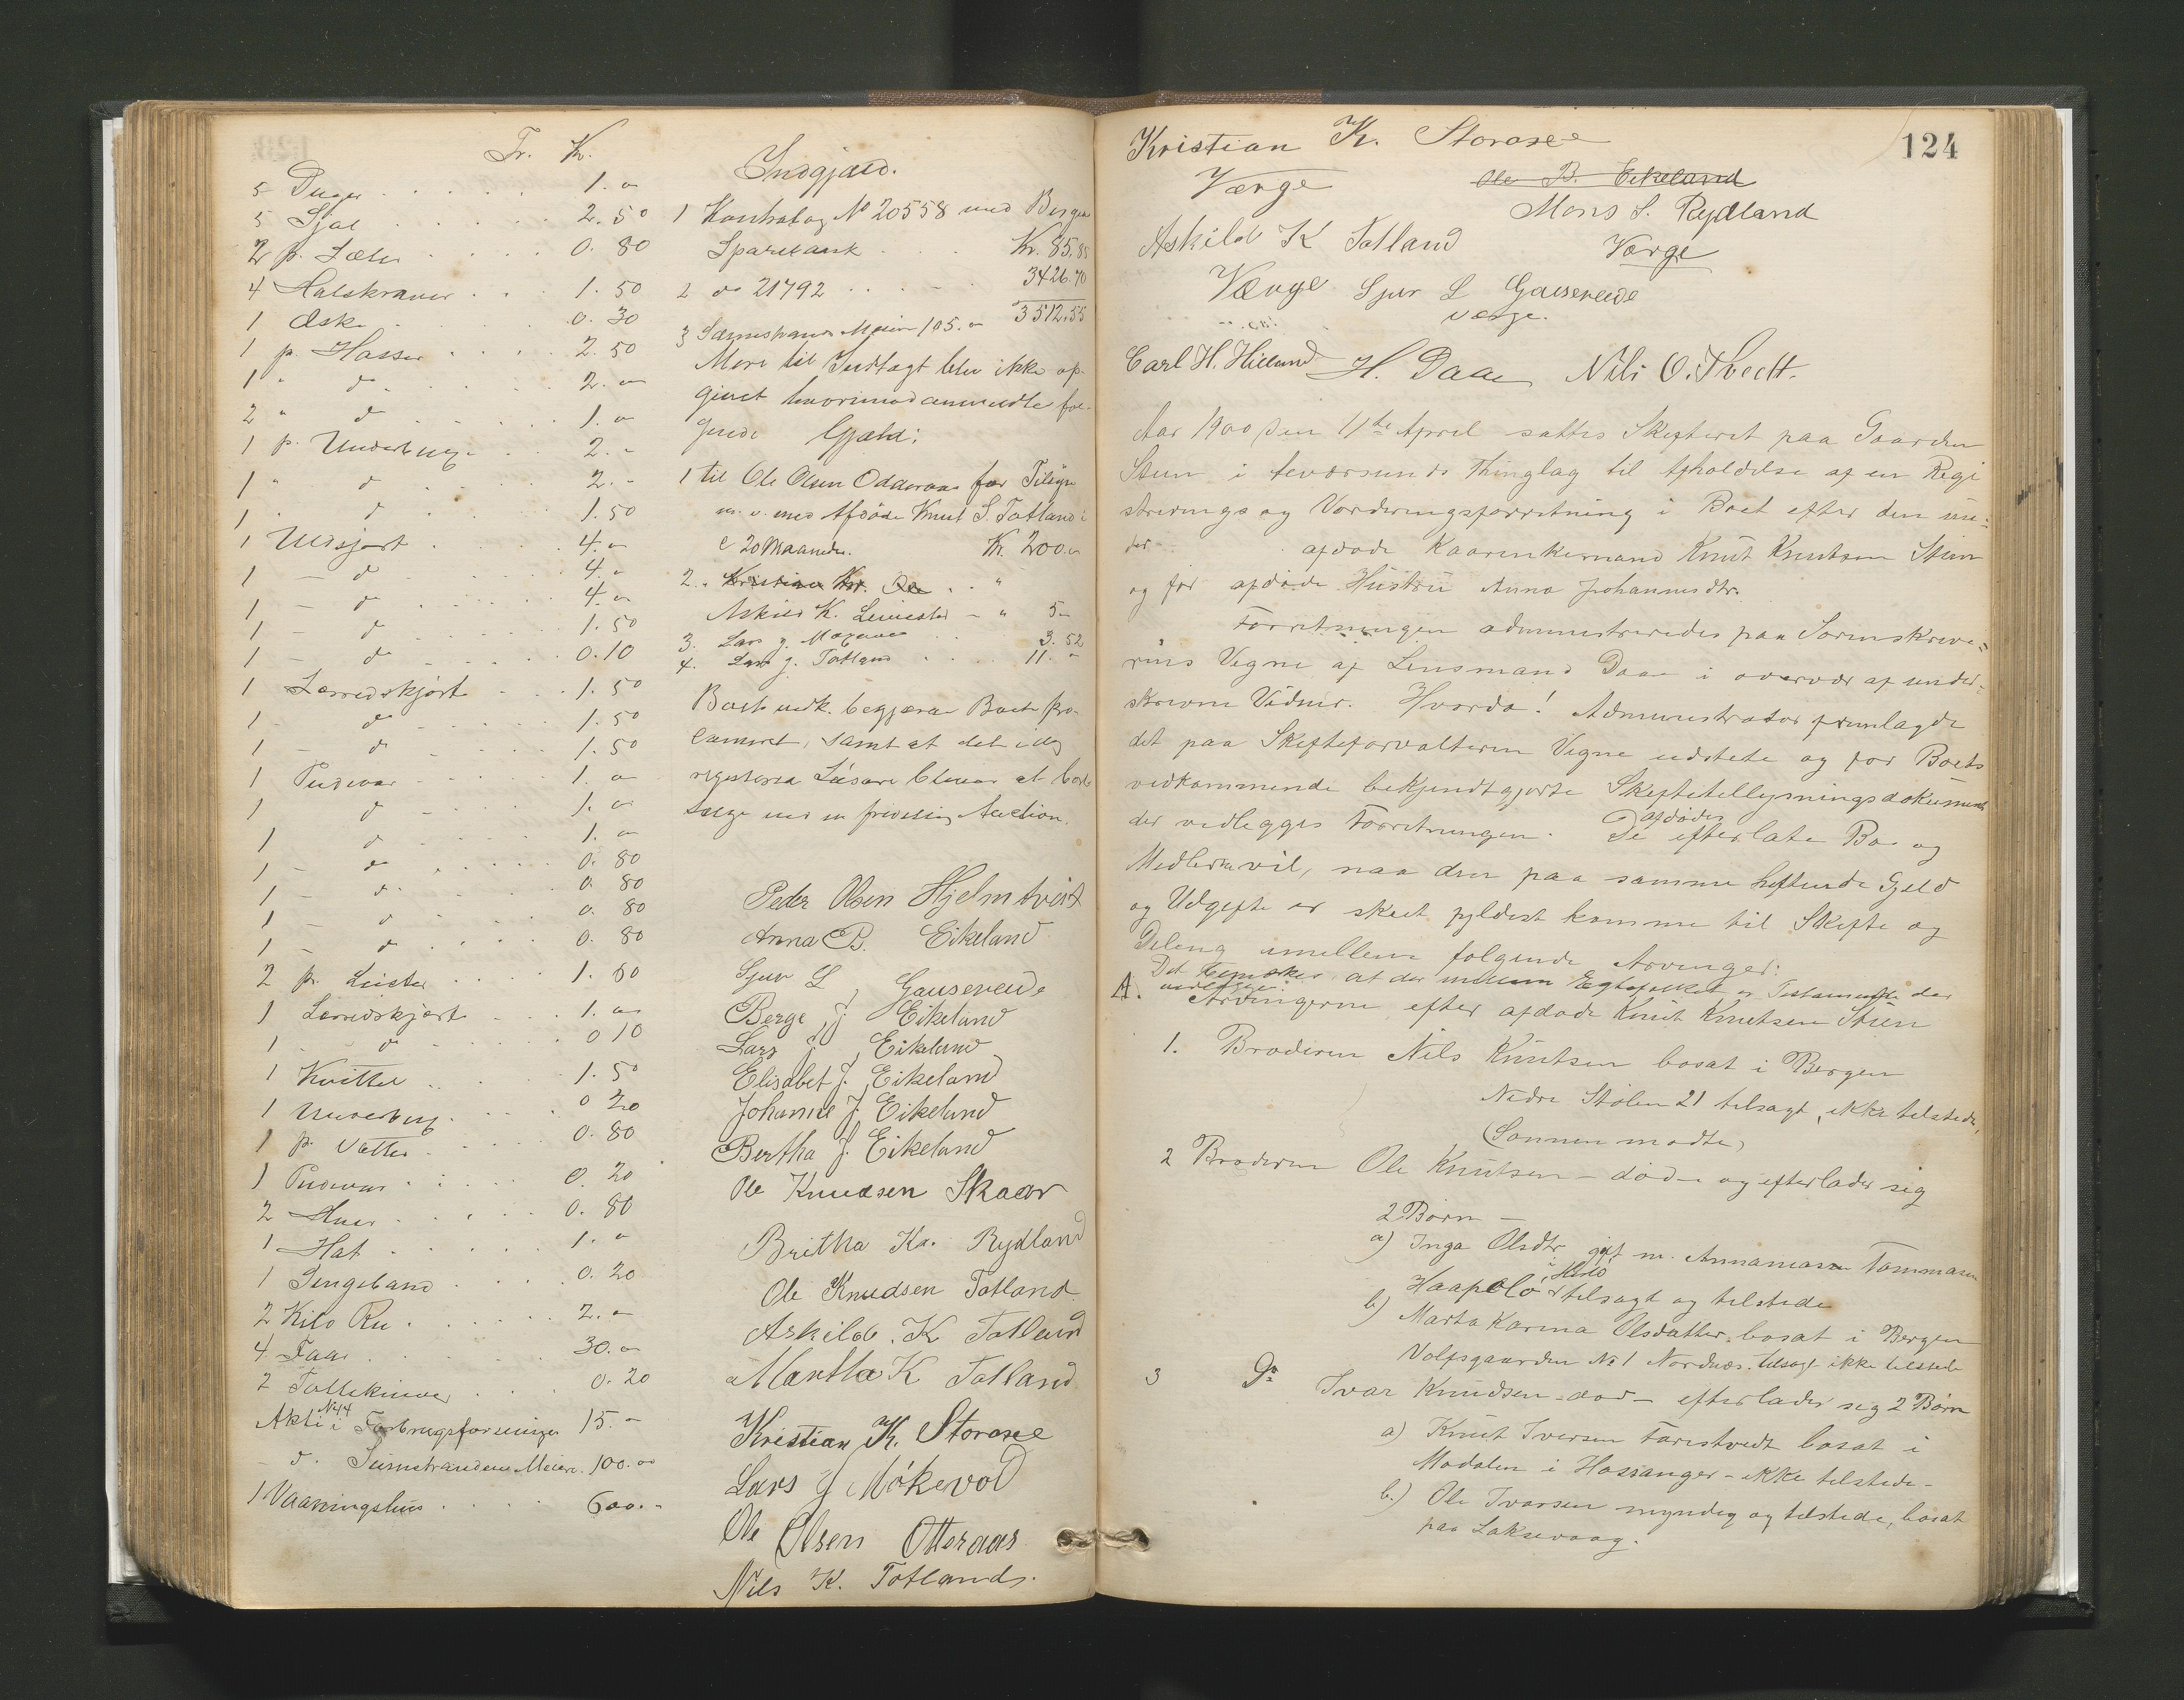 Tr. K.
5 Duger . . . . 1. "
5 Sjal . . . . 2. 50
2 p. Læster . . . . 0. 80
4 Halskraver . . . 1. 50
1 Æske . . . . 0. 30
1 p. Hasser . . . . 2. 50
1 " do . . . . 2. "
2 " do . . . . 1. "
1 p. Underbuxe . . 2. "
1 " do . . . . 2. "
1 " do . . . . 1. 50
1 Uldsjort . . . . 4. "
1 — do . . . . 4. "
1 — do . . . . 4. "
1 — do . . . . 1. 50
1 — do . . . . 0. 10
1 Lærredskjorte . . . 1. 50
1 — do . . . . 1. 50
1 — do . . . . 1. 50
1 Pudevar . . . . 1. "
1 do . . . . 1. "
1 do . . . . 1. "
1 — do . . . . 0. 80
1 — do . . . . 0. 80
1 — do . . . . 0. 80
1 — do . . . . 0. 80
2 p. Leister . . . 1. 80
1 Lærredskjorte . . . 1. "
1 do . . . . 0 10
1 Kvittel . . . . 1. 50
1 Underbuxe . . . . 0 20
1 p. Vatter . . . . 0. 80
1 Pudevar . . . . 0. 20
2 Huer . . . . 0. 80
1 Hat . . . . 1. "
1 Sengebaand . . . 0. 20
2 Kilo Ru . . . . 2. "
4 Faar . . . . 30. "
2 . . . 0. 20
Aktie i No 44 Forbrugsforeningen 15. "
— do. Samstrandens Meieri. 100. "
1 Vaaningshus . . . . 600. "
Indgjæld.
1 Kontrabog No 20558 med Bergens
Sparebank . . . Kr. 85,85
2 do 21792 . . . . 3426.70
3512.55
3 Samnstrands Meieri 105. "
Mere til Indtægt blev ikke op-
givet hvorimod anmeldtes føl-
gende Gjæld:
1 til Ole Olsen Odderaas for Tilsyn
m. v. med Afdøde Knut S. Totland i
c 20 Maaneder. Kr. 200. "
2. " Kristian Kr. Ole . . "
Askild K. Leirested - " 5 —
3. Lars J. Møgevod . . 3. 52
4. Lars J. Totland . . . 11. "
Boets vedk. begjærer Boets pro-
clameret, samt at det idag
registerea Løsøre bliver at bort-
sælge ved en frivillig Auction.
Peder Olsen Hjelmtveit
Anna B. Eikeland
Sjur L Gausereide
Berge J Eikeland
Lars J. Eikeland
Elisabet J. Eikeland
Johanne J. Eikeland
Bertha J. Eikeland
Ole Knudsen Skaar
Britha Ka. Rydland
Ole Knudsen Totland
Askild. K Totland
Martha K Totland
Kristian K. Storose
Lars J Mökevod
Ole Olsen Otteraas
Nils K. Totland.
124
Kristian K. Storose
Værge
Ole B. Eikeland
Mons S. Rydland
Værge
Askild K Totland
Værge Sjur L Gausereide
værge.
Carl H. Hilland H. Daae Nils O. Tvedt.
Aar 1900 den 11te April sattes Skifteret paa Gaarden
Steen i thinglag til Afholdelse af en Regi
strerings og Vorderingsforretning i Boet efter den un:
der afdøde Kaarenkemand Knut Knutsen Steen
og før afdøde Hustru Anna Johannesdtr.
Forretningen administreredes paa Sorenskrive-
rens Vegne af Lensmand Daae i overvær af under-
skrevne Vidner. Hvorda! Administrator fremlagde
det paa Skifteforvalteren Vegne udstete og for Boets
vedkommende bekjendtgjorte Skiftetillysningsdokument
der vedlegges Forretningen. De afdødes efterlate Bo og
Midler vil, naar den paa samme heftende Gjeld
og Udgifte er skeet fyldest komme til Skifte og
Deling imellem følgende Arvinger:
Det bemerkes at der mellem Egtefolket er Testamente der
vedlegges.
A. Arvingerne efter afdøde Knut Knutsen Steen
1. Broderen Nils Knutsen bosat i Bergen
Nedre Stølen 21 tilsagt, ikke tilstede,
(Sønnen mødte)
2 Broderen Ole Knutsen — død — og efterlader sig
2 Børn —
a) Inga Olsdtr. gift m. Annanias Tommasen
Haapolo i Herlø tilsagt og tilstede
b) Marta Karina Olsdatter, bosat i Bergen
Volfsgaarden No 1 Nordnæs. tilsagt ikke tilstede
3 Do Ivar Knudsen — død — efterlader sig 2 Børn
a) Knut Iversen Farestvedt bosat i
Modalen i Hossanger — ikke tilstede —
b.) Ole Ivarsen myndig og tilstede, bosat
paa Laksevaag.